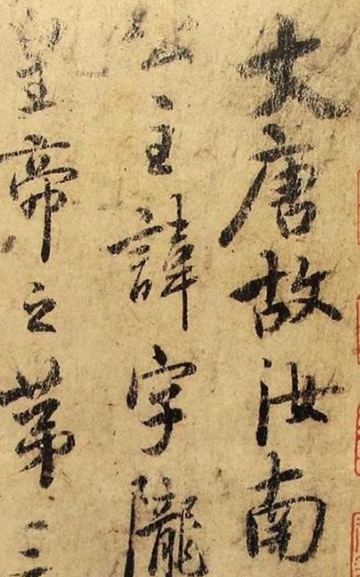 大唐故汝南
公主諱字隴
皇帝之第三